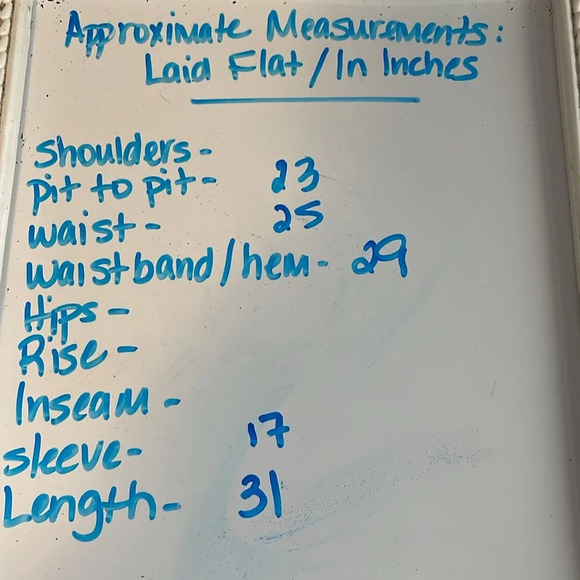 Approximate Measurements:
Laid Flat / In Inches
Shoulders -
pit to pit - 23
waist - 25
waistband / hem - 29
Hips -
Rise -
Inseam -
sleeve - 17
Length - 31